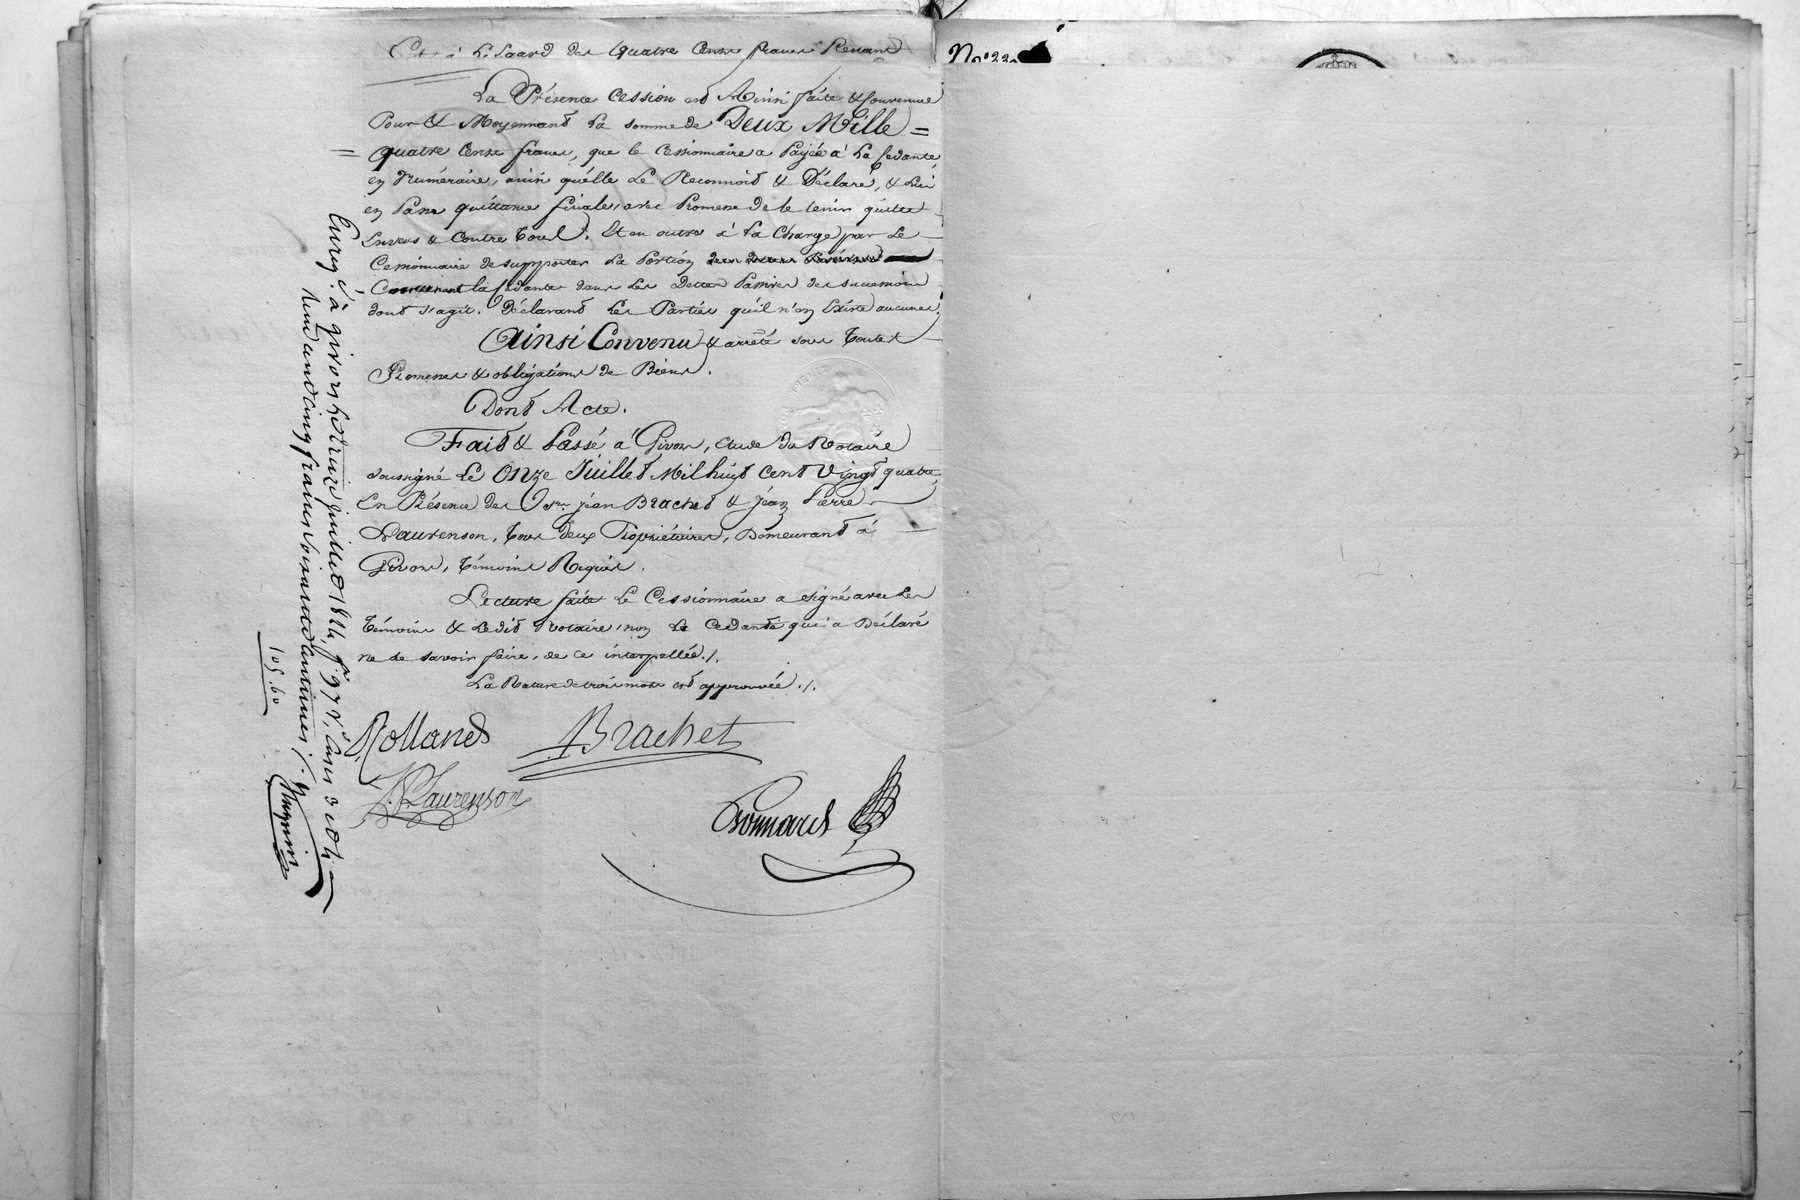 à L'égard des quatre Cents francs Restant
La Présente Cession est Ainsi faite & Convenue
Pour & Moyennant La somme de Deux Mille =
= quatre Cents francs, que le Cessionnaire a Payée à La Cedante
en Numéraire, ainsi qu'elle Le Reconnoit & Déclare, & Lui
en Passe quittance finale, avec Promesse de le tenir quitte
Envers & Contre Tous. Et en outre à La Charge par Le
Cessionnaire de supporter La Portion
Concernant la Cedante dans Les Dettes Passives des successions
dont s'agit. Déclarant Les Parties qu'il n'en Existe aucunes.
Ainsi Convenu & arrêté sous Toutes
Promesses & obligations de Biens.
Dont Acte.
Fait & Passé à Givors, étude du Notaire
soussigné Le Onze Juillet Mil huit Cent Vingt quatre,
En Présence des Srs. Jean Brachet & Jean Pierre
Laurenson, Tous deux Propriétaires, Demeurant à
Givors, Témoins Requis.
Lecture faite Le Cessionnaire a signé avec Les
Témoins & Ledit Notaire, non La Cedante qui a Déclaré
ne le savoir faire, de ce interpellée./.
La Rature de trois mots est approuvée./.
Rolland Brachet
J. P. Laurenson
Bonnard
Enregé. à givors le treize juillet 1824, f° 97 Vo, Cases 3 et 4
Reçu cent cinq francs soixante centimes /.
105,60
No. 220